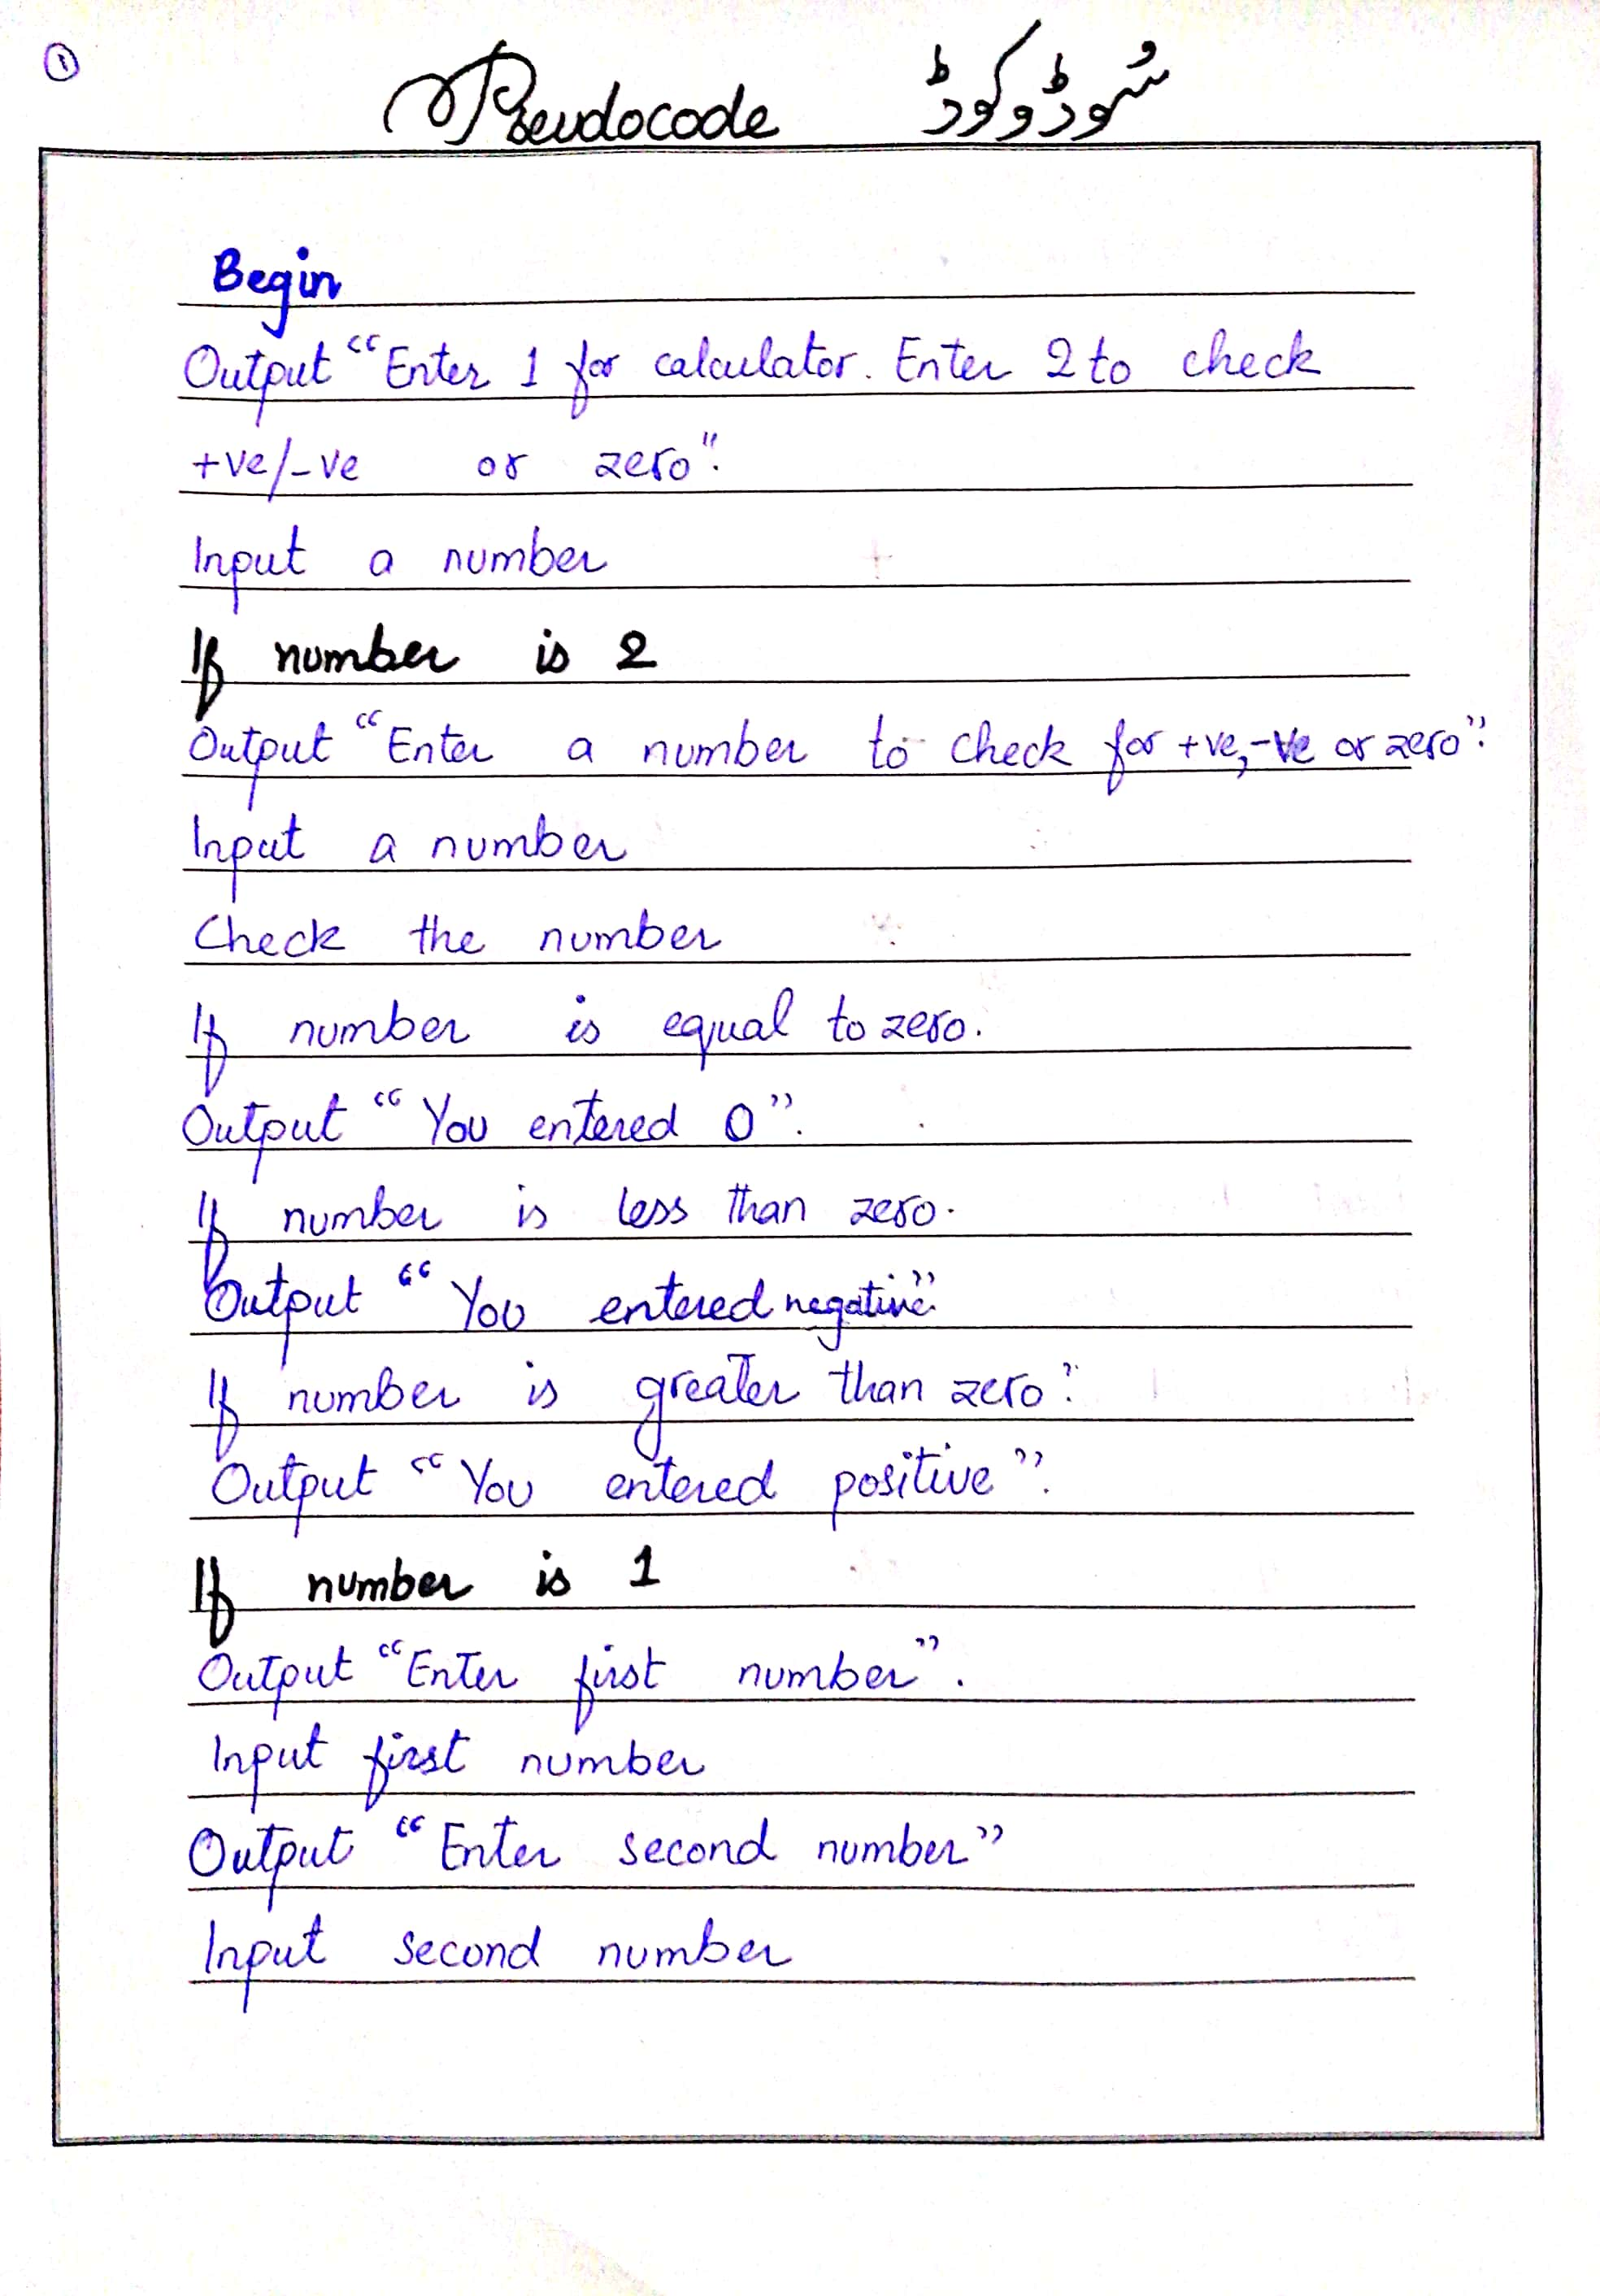 ①
Pseudocode سُوڈوکوڈ
Begin
Output “Enter 1 for calculator. Enter 2 to check
+ve/-ve or zero".
Input a number
If number is 2
Output “Enter a number to check for +ve,-ve or zero”.
Input a number
Check the number
If number is equal to zero.
Output “You entered 0”.
If number is less than zero.
Output “You entered negative”.
If number is greater than zero".
Output “You entered positive”.
If number is 1
Output “Enter first number”.
Input first number
Output “Enter second number”
Input second number